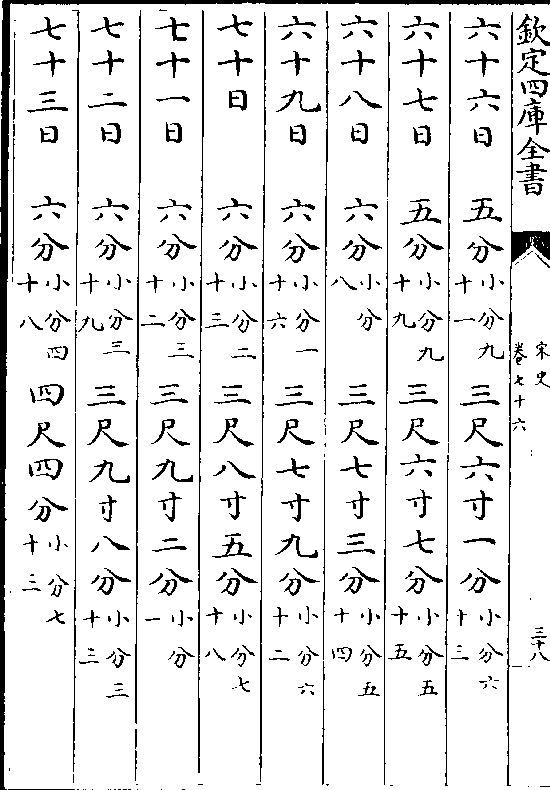 欽定四庫全書
宋史
卷七十六
三十八
六十六日　五分小分九十一　三尺六寸一分小分六十三
六十七日　五分小分九十九　三尺六寸七分小分五十五
六十八日　六分小分八　三尺七寸三分小分五十四
六十九日　六分小分一十六　三尺七寸九分小分六十二
七十日　六分小分二十三　三尺八寸五分小分七十八
七十一日　六分小分三十二　三尺九寸二分小分一
七十二日　六分小分三十九　三尺九寸八分小分三十三
七十三日　六分小分四十八　四尺四分小分七十三